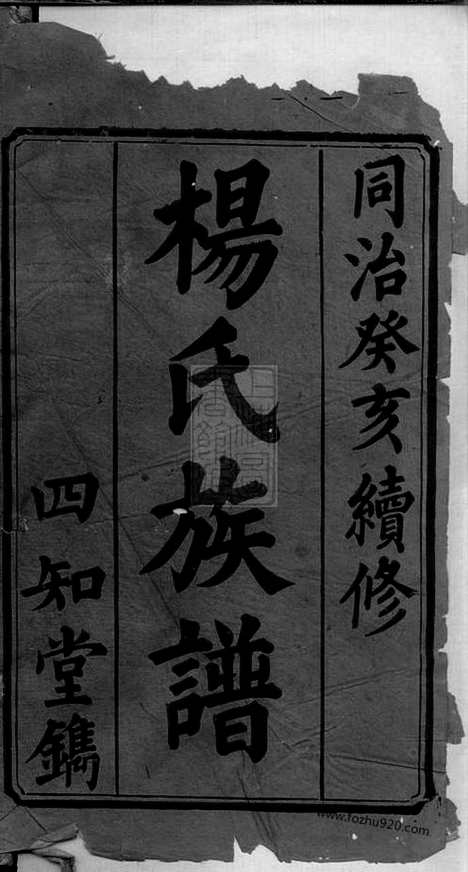 同治癸亥續修
楊氏族譜
四知堂鐫
www.fozhu920.com